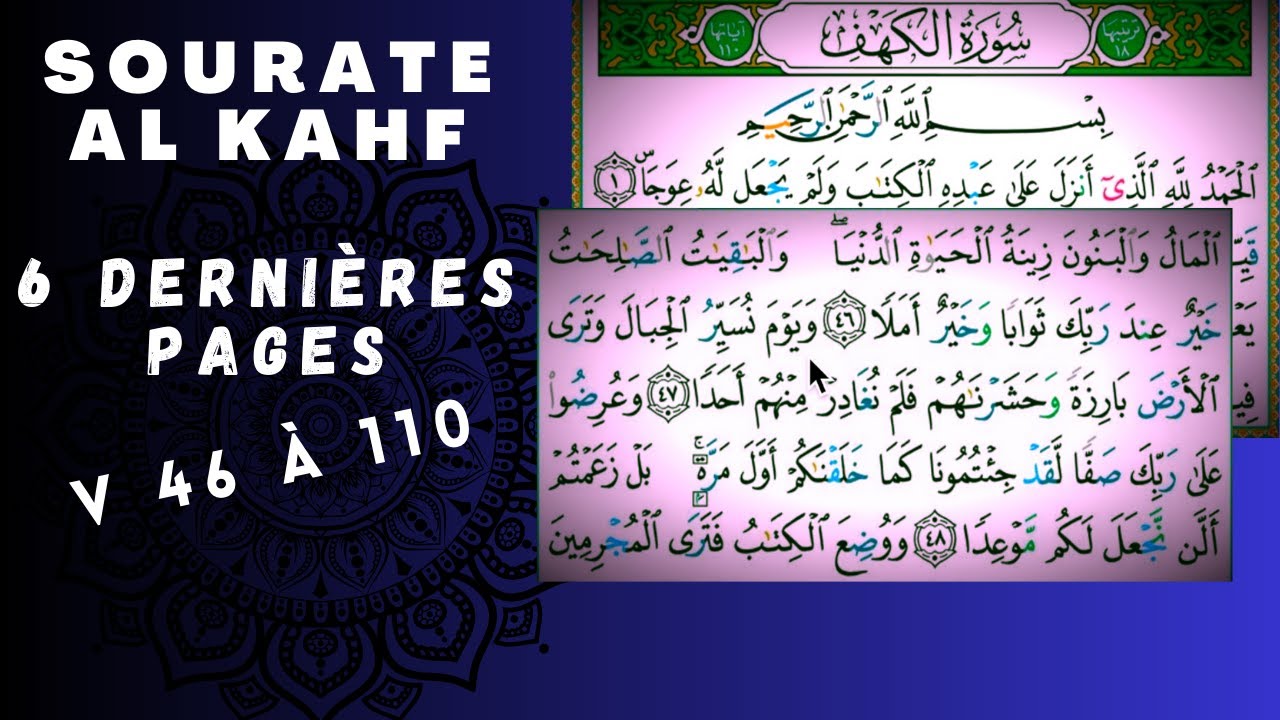 SOURATE
AL KAHF
6 DERNIÈRES
PAGES
V 46 À 110
ترتيبها ١٨
سُورَةُ الكَهْفِ
آياتها ١١٠
بِسْمِ ٱللَّهِ ٱلرَّحْمَٰنِ ٱلرَّحِيمِ
ٱلْحَمْدُ لِلَّهِ ٱلَّذِىٓ أَنزَلَ عَلَىٰ عَبْدِهِ ٱلْكِتَٰبَ وَلَمْ يَجْعَل لَّهُۥ عِوَجَاۜ ١
ٱلْمَالُ وَٱلْبَنُونَ زِينَةُ ٱلْحَيَوٰةِ ٱلدُّنْيَاۖ وَٱلْبَٰقِيَٰتُ ٱلصَّٰلِحَٰتُ
خَيْرٌ عِندَ رَبِّكَ ثَوَابًا وَخَيْرٌ أَمَلًا ٤٦ وَيَوْمَ نُسَيِّرُ ٱلْجِبَالَ وَتَرَى
ٱلْأَرْضَ بَارِزَةً وَحَشَرْنَٰهُمْ فَلَمْ نُغَادِرْ مِنْهُمْ أَحَدًا ٤٧ وَعُرِضُوا۟
عَلَىٰ رَبِّكَ صَفًّا لَّقَدْ جِئْتُمُونَا كَمَا خَلَقْنَٰكُمْ أَوَّلَ مَرَّةٍۭۚ بَلْ زَعَمْتُمْ
أَلَّن نَّجْعَلَ لَكُم مَّوْعِدًا ٤٨ وَوُضِعَ ٱلْكِتَٰبُ فَتَرَى ٱلْمُجْرِمِينَ